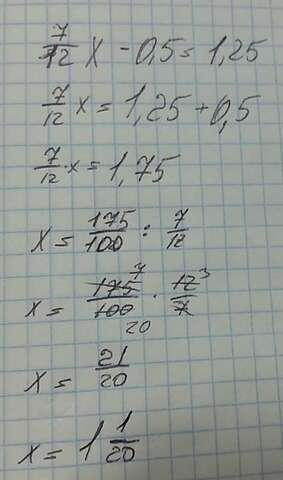 7/12 x - 0,5 = 1,25
7/12 x = 1,25 + 0,5
7/12 · x = 1,75
x = 175/100 : 7/12
x = 175/100 · 12/7 7 20 3
x = 21/20
x = 1 1/20